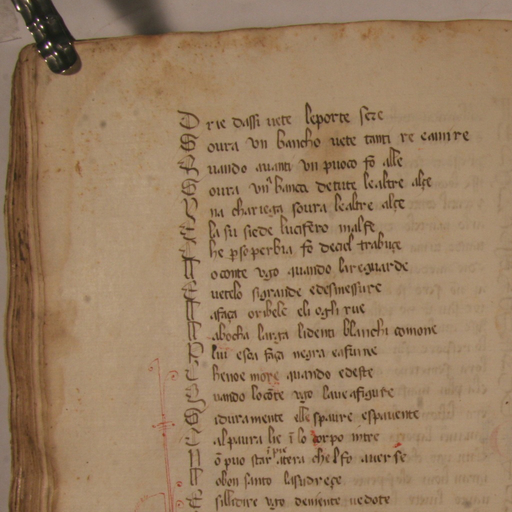 O rie dassi uete le porte seze
S oura vn bancho uete tanti re eamire
Q uando auanti vn puoco fo alle
S oura vn banch de tute le altre alçe
V na chariega soura le altre alçe
E la su siede lucifero malfe
C he p soperbia fo deciel trabuçe
N o conte vgo quando la reguarde
E uetelo si grande e desmessure
L a faça oribele eli ogli rue
L a bocha larga li denti blanchi comone
P lui esea faça negra e afume
C he noe more quando edeste
Q uando lo cote vgo laue afigure
S i duramente elle spaure espauente
E al paura lie i lo corpo intre
N o puo star chel fo auer se
E sillidire vgo deniente uedote